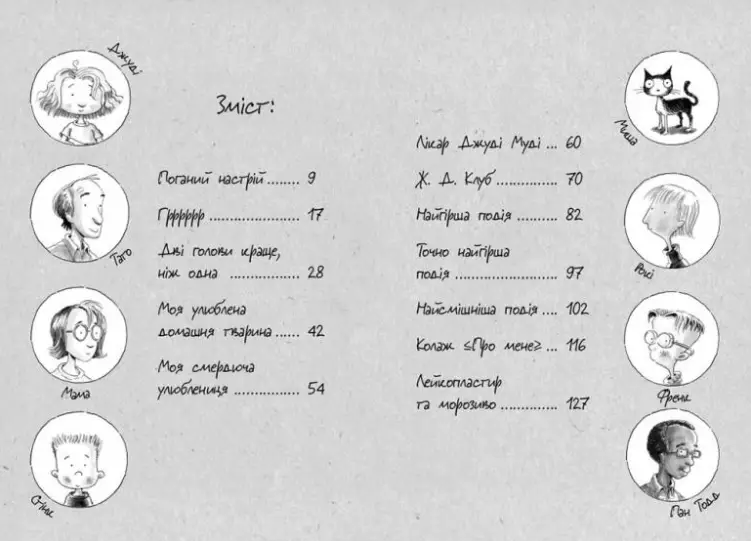 Джуді
Тато
Мама
Стінк
Зміст:
Поганий настрій ........ 9
Гррррр ...................... 17
Дві голови краще,
ніж одна ................. 28
Моя улюблена
домашня тварина ...... 42
Моя смердюча
улюблениця ................ 54
Лікар Джуді Муді ... 60
Ж. Д. Клуб ............... 70
Найгірша подія .......... 82
Точно найгірша
подія ....................... 97
Найсмішніша подія .... 102
Колаж «Про мене» ... 116
Лейкопластир
та морозиво .............. 127
Миша
Рокі
Френк
Пан Тодд